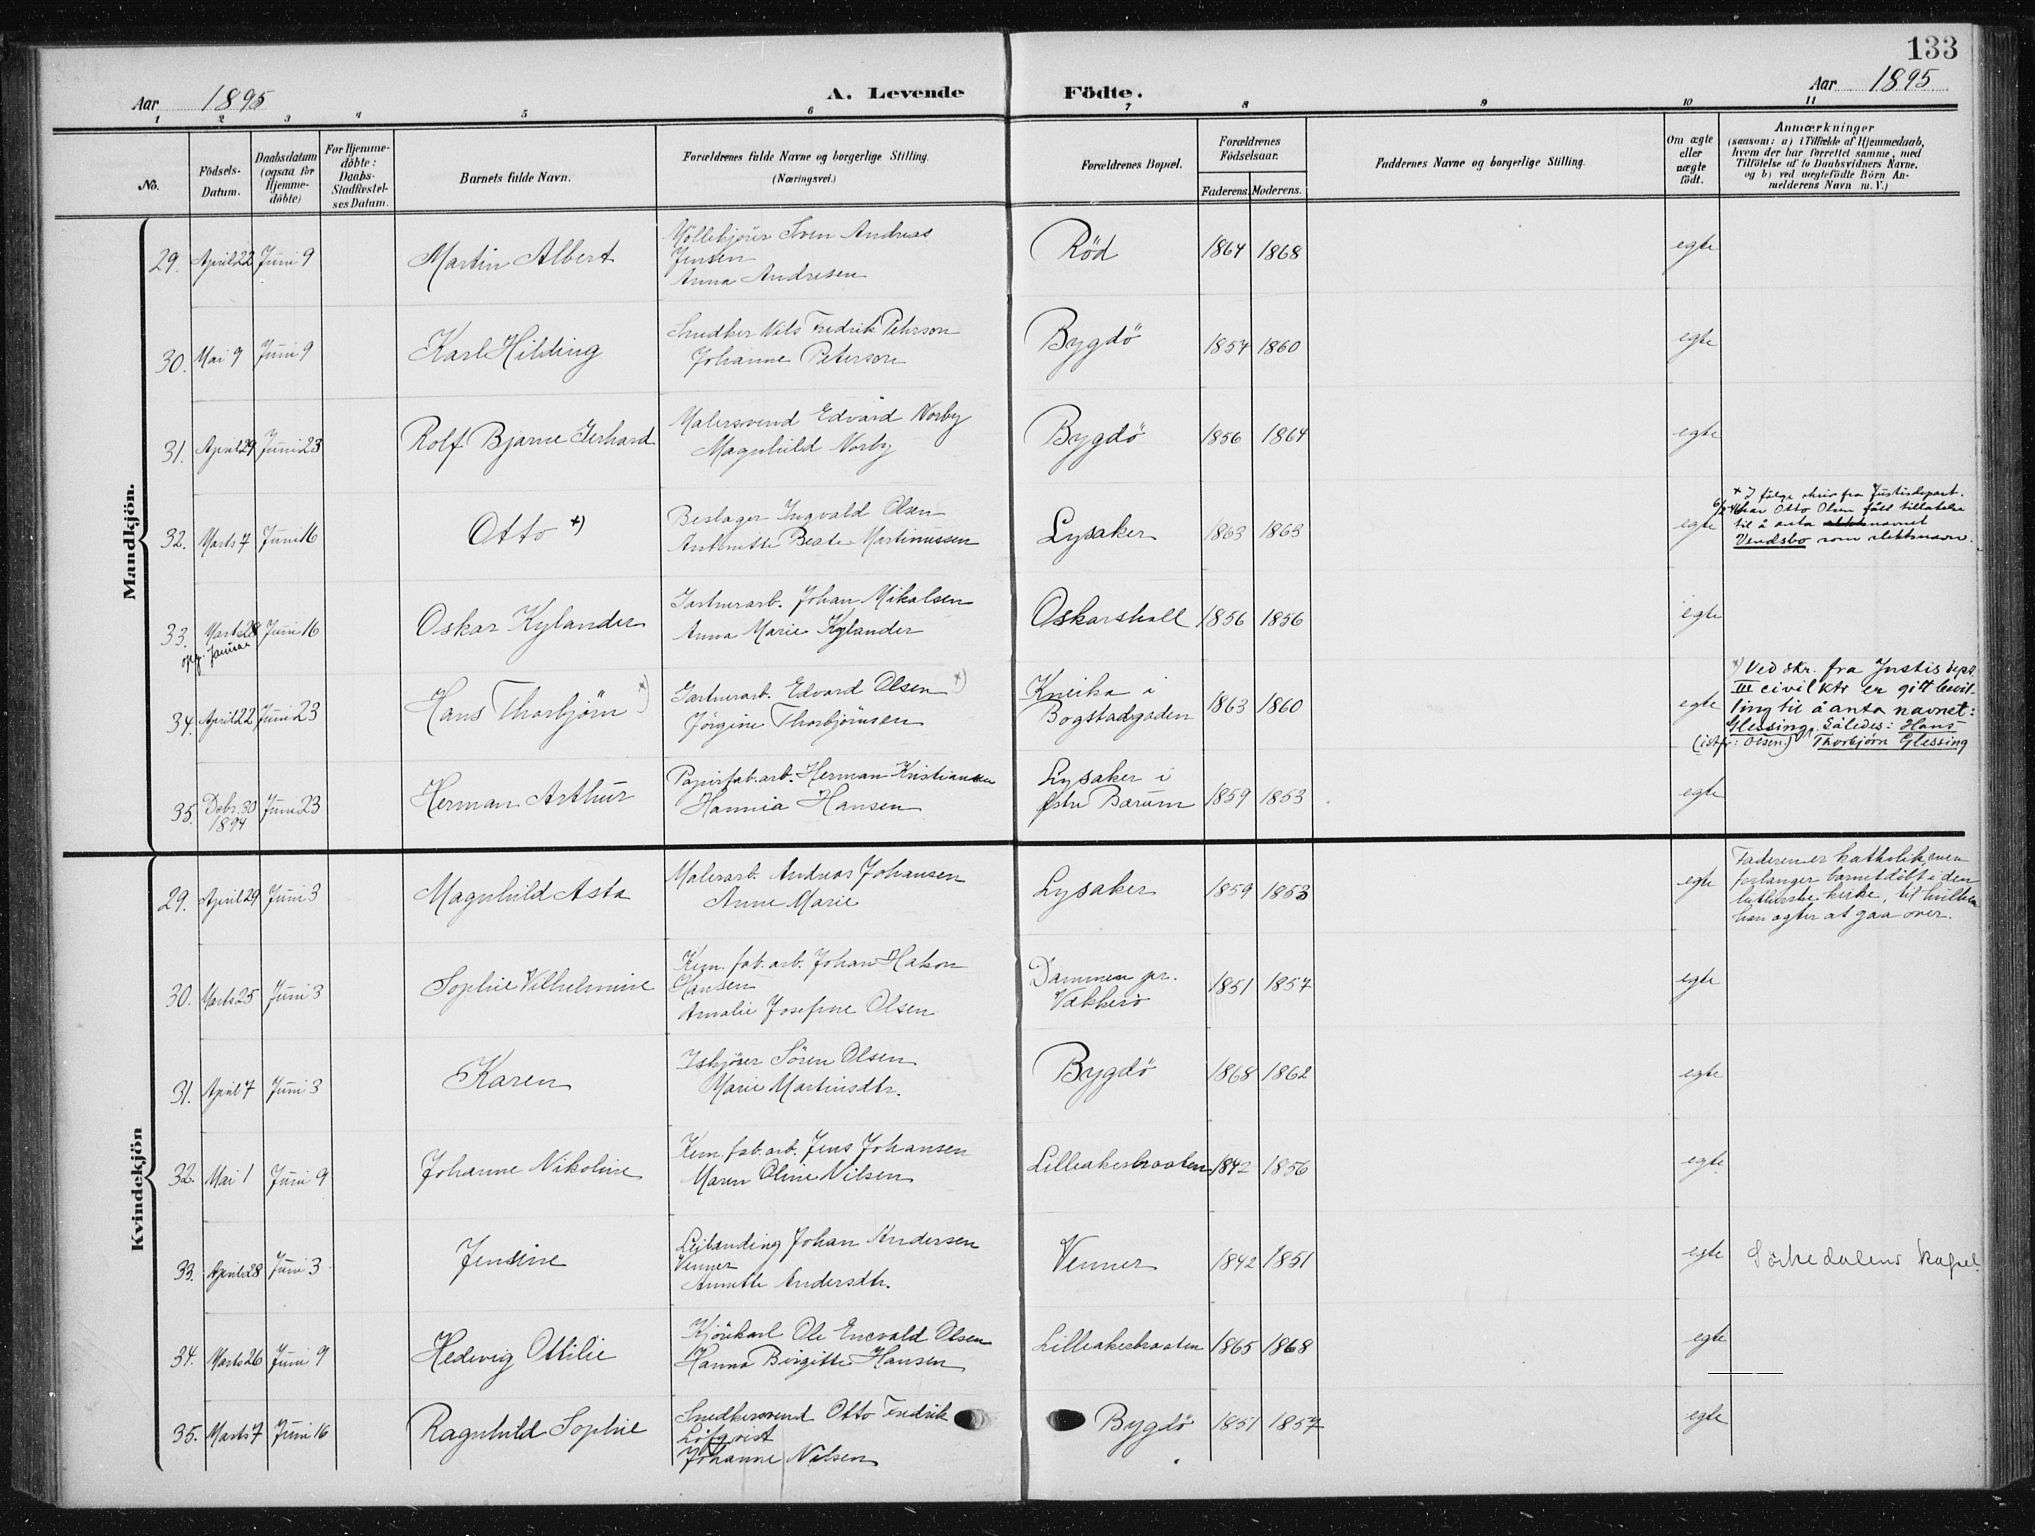 133
Aar 1895 A. Levende Födte. Aar 1895
1 2 3 4 5 6 7 8 9 10 11
No.
Födsels-Datum.
Daabsdatum (ogsaa för Hjemme-döbte)
For Hjemme-döbte: Daabs-Stadfæstel-ses Datum.
Barnets fulde Navn.
Forældrenes fulde Navne og borgerlige Stilling.
(Næringsvei.)
Forældrenes Bopæl.
Forældrenes Födselsaar.
Faderens. Moderens.
Faddernes Navne og borgerlige Stilling.
Om ægte eller uægte födt.
Anmærkninger
(saasom: a) i Tilfælde af Hjemmedaab,
hvem der har forrettet samme, med
Tilföielse af to Daabsvidners Navne.
og b) ved uægtefödte Börn An-
melderens Navn m. V.)
Mandkjön.
29. April 22 Juni 9 Martin Albert
Sven Andreas
Jensen
Anna Andresen
Röd 1864 1868 egte
30. Mai 9 Juni 9 Karl Hilding
Snedker Nils Fredrik Pehrson
Johanne Peterson
Bygdö 1854 1860 egte
31. April 29 Juni 23 Rolf Bjarne Gerhard
Malersvend Edvard Norby
Magnhild Norby
Bygdö 1856 1864 egte
32. Marts 7 Juni 16 Otto x)
Beslager Ingvald Olsen
Antonette Beate Martinussen
Lysaker 1863 1863 egte
x I følge skriv fra Justisdepart.
har Otto Olsen fått tillatelse
til å anta navnet
Vendsbo som slektsnavn.
33. Marts 28 Juni 16 Oskar Kylander
opg. Januar
Gartnerarb. Johan Mikalsen
Anna Marie Kylander
Oskarshall 1856 1856 egte
34. April 22 Juni 23 Hans Thorbjörn x)
Gartnerarb. Edvard Olsen x)
Jörgine Thorbjörnsen
Kneika i
Bogstadgaden 1863 1860 egte
x) Ved skr. fra Justisdepa.
III civilktr er gitt bevil-
ling til å anta navnet:
Glessing. Således: Hans
(istf: Olsen.) Thorbjørn Glessing
35. Debr. 30 1894 Juni 23 Herman Arthur
Papirfab.arb. Herman Kristiansen
Hannia Hansen
Lysaker i
Østre Bærum 1859 1853 egte
Kvindekjön
29. April 29 Juni 3 Magnhild Asta
Malerarb. Andreas Johansen
Anne Marie
Lysaker 1859 1853 egte
Faderen er katholik, men
forlanger barnet döbt i den
lutherske kirke, til hvilken
han agter at gaa over.
30. Marts 25 Juni 3 Sophie Vilhelmine
Kem. fab. arb. Johan Hakon
Hansen
Amalie Josefine Olsen
Dammen pr.
Vækkerö 1851 1857 egte
31. April 7 Juni 3 Karen
Iskjörer Sören Olsen
Marie Martinsdtr.
Bygdö 1868 1862 egte
32. Mai 1 Juni 9 Johanne Nikoline
Kem. fab. arb. Jens Johansen
Maren Oline Nilsen
Lilleakerbraaten 1842 1856 egte
33. April 28 Juni 3 Jensine
Leilænding Johan Andersen
Venner
Annette Andersdtr.
Venner 1842 1851 egte Sörkedalens kapel.
34. Marts 26 Juni 9 Hedevig Ottilie
Kjörekarl Ole Enevald Olsen
Hanna Birgitte Hansen
Lilleakerbraaten 1865 1868 egte
35. Marts 7 Juni 16 Ragnhild Sophie
Snedkersvend Otto Fredrik
Löfqvist
Johanne Nilsen
Bygdö 1851 1857 egte